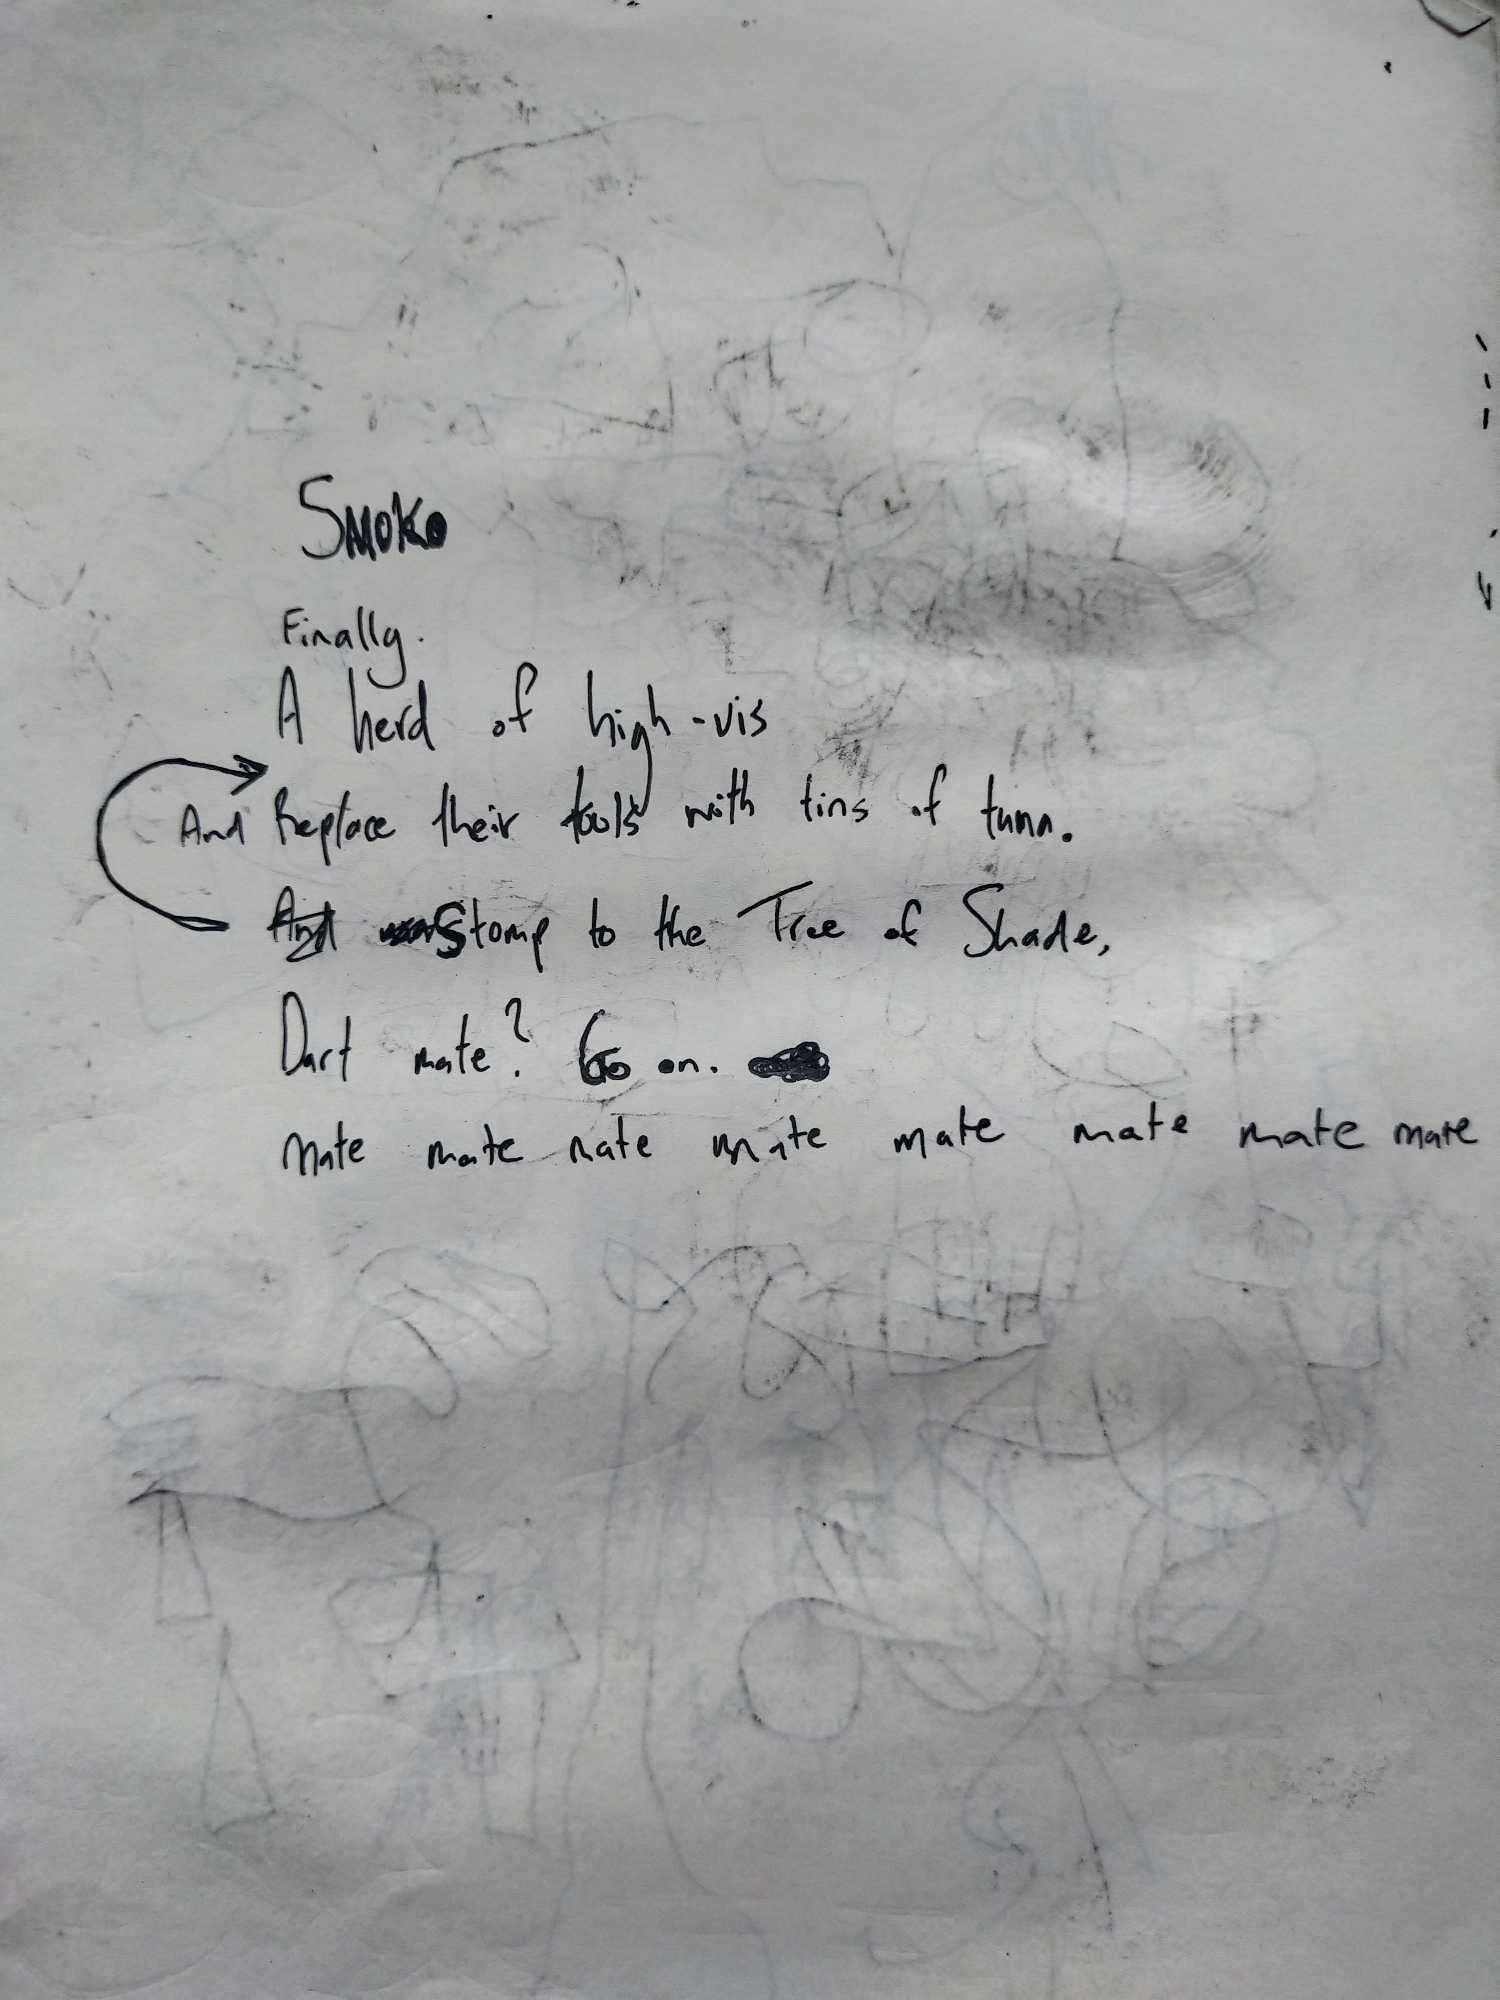 Smoko
Finally.
A herd of high-vis
And Replace their tools with tins of tuna.
And Stomp to the Tree of Shade,
Dart mate? Go on.
mate mate mate mate mate mate mate mate